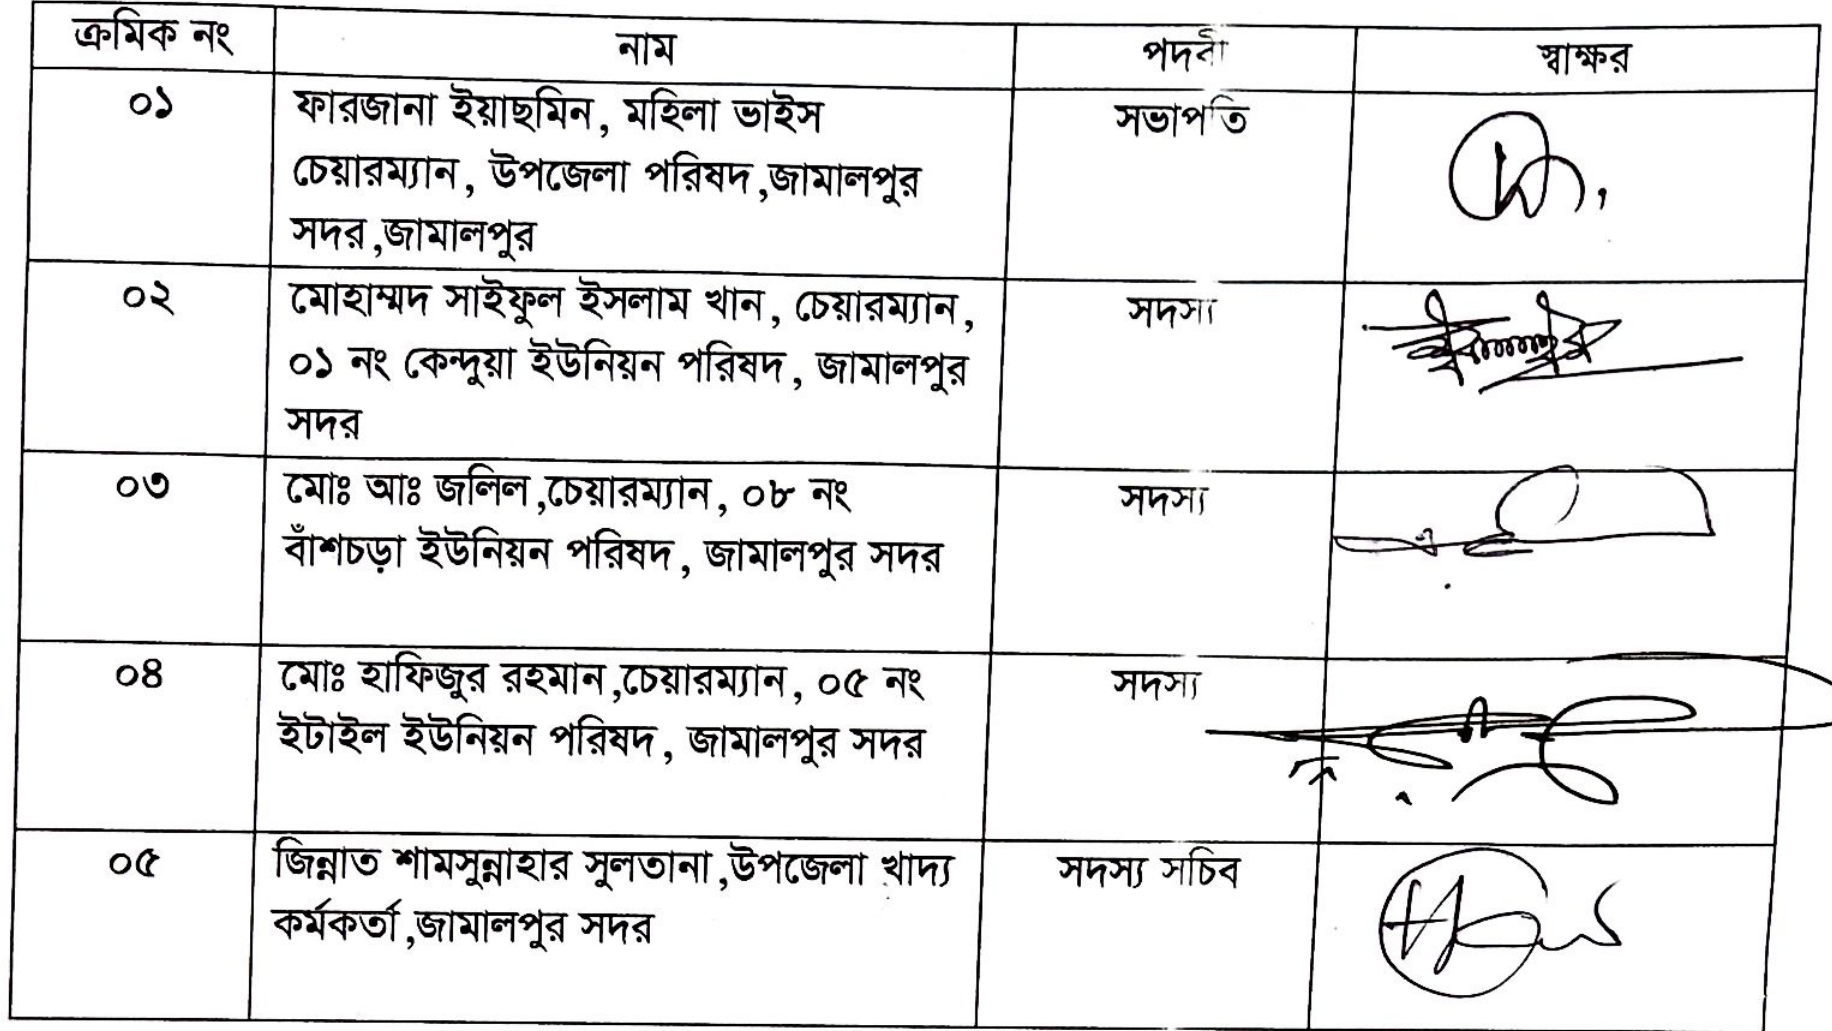 ক্রমিক নং নাম পদবী স্বাক্ষর
০১ ফারজানা ইয়াছমিন, মহিলা ভাইস সভাপতি
চেয়ারম্যান, উপজেলা পরিষদ,জামালপুর
সদর,জামালপুর
০২ মোহাম্মদ সাইফুল ইসলাম খান, চেয়ারম্যান, সদস্য
০১ নং কেন্দুয়া ইউনিয়ন পরিষদ, জামালপুর
সদর
০৩ মোঃ আঃ জলিল,চেয়ারম্যান, ০৮ নং সদস্য
বাঁশচড়া ইউনিয়ন পরিষদ, জামালপুর সদর
০৪ মোঃ হাফিজুর রহমান,চেয়ারম্যান, ০৫ নং সদস্য
ইটাইল ইউনিয়ন পরিষদ, জামালপুর সদর
০৫ জিন্নাত শামসুন্নাহার সুলতানা,উপজেলা খাদ্য সদস্য সচিব
কর্মকর্তা,জামালপুর সদর